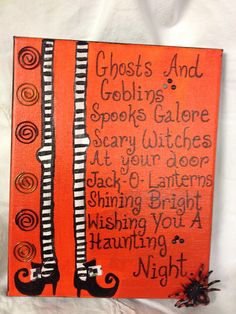 Ghosts And
Goblins
Spooks Galore
Scary Witches
At your door
Jack-O-Lanterns
Shining Bright
Wishing You A
Haunting
Night.